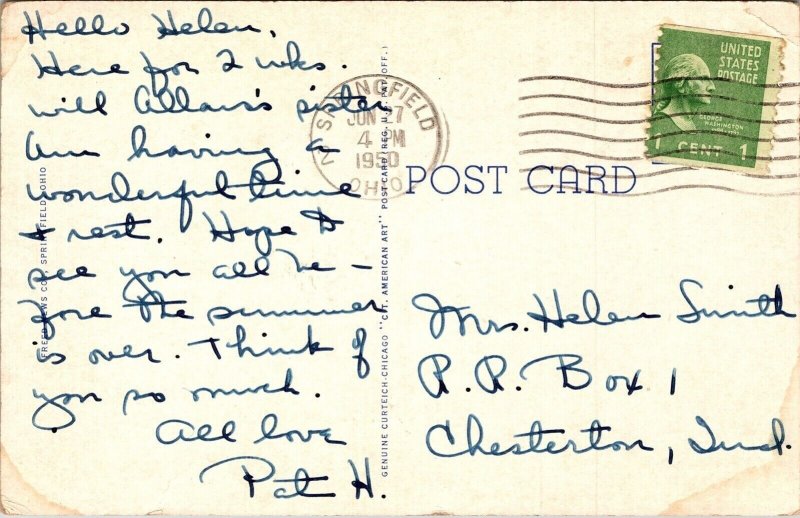 Hello Helen,
Here for 2 wks.
will Allan's sister
Am having a
wonderful time
& rest. Hope to
see you all be-
fore the summer
is over. Think of
you so much.
All love
Pat H.
FREED NEWS CO., SPRINGFIELD, OHIO
GENUINE CURTEICH-CHICAGO "C.T. AMERICAN ART" POST CARD (REG. U.S. PAT. OFF.)
SPRINGFIELD
JUN 27
4 PM
1950
OHIO
UNITED
STATES
POSTAGE
GEORGE
WASHINGTON
1 CENT 1
POST CARD
Mrs. Helen Smith
R.R. Box 1
Chesterton, Ind.